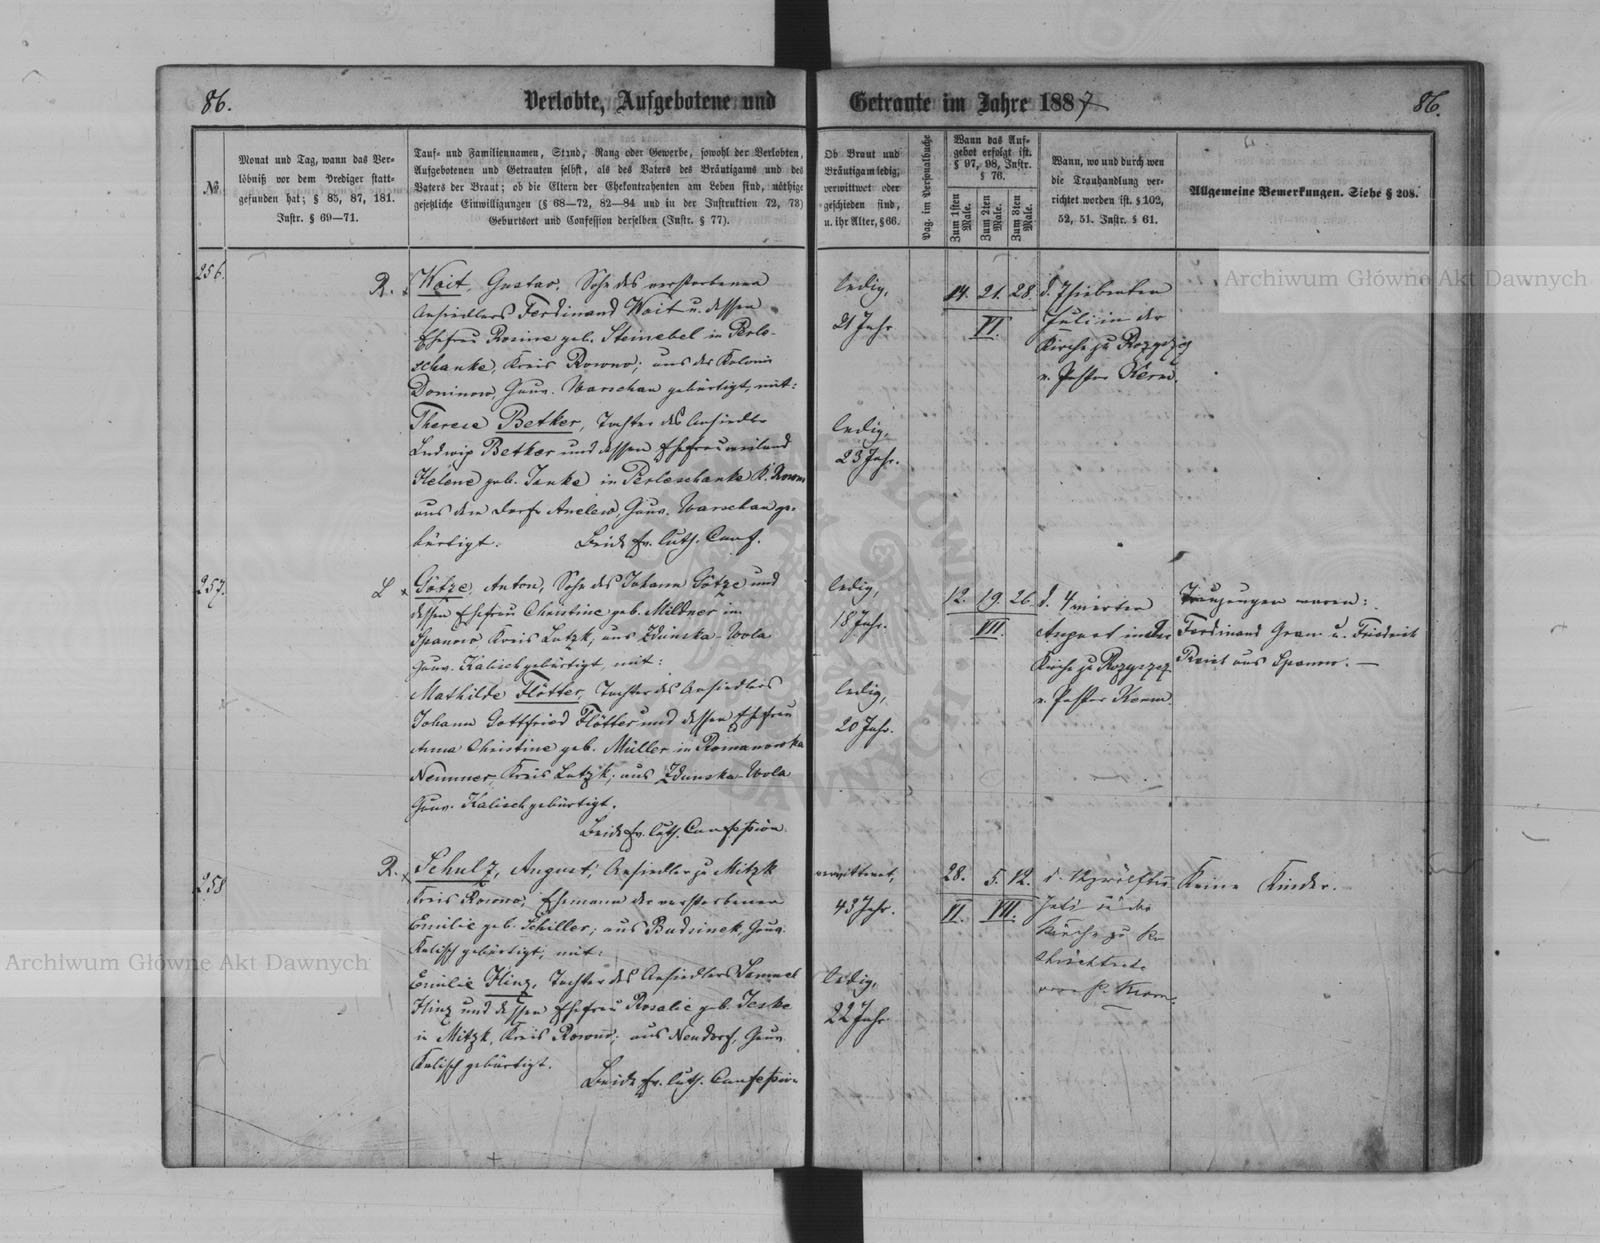 86.
Verlobte, Aufgebotene und
Getraute im Jahre 1887
86.
№.
Monat und Tag, wann das Ver-
löbniß vor dem Prediger statt-
gefunden hat; § 85, 87, 181.
Instr. § 69—71.
Tauf- und Familiennamen, Stand, Rang oder Gewerbe, sowohl der Verlobten,
Aufgebotenen und Getrauten selbst, als des Vaters des Bräutigams und des
Vaters der Braut; ob die Eltern der Ehekontrahenten am Leben sind, nöthige
gesetzliche Einwilligungen (§ 68—72, 82—84 und in der Instruktion 72, 73)
Geburtsort und Confession derselben (Instr. § 77).
Ob Braut und
Bräutigam ledig,
verwittwet oder
geschieden sind,
u. ihr Alter, § 66.
Pag. im Personalbuche
Wann das Auf-
gebot erfolgt ist.
§ 97, 98, Instr.
§ 76.
Zum 1sten
Male.
Zum 2ten
Male.
Zum 3ten
Male.
Wann, wo und durch wen
die Trauhandlung ver-
richtet worden ist. § 102,
52, 51. Instr. § 61.
Allgemeine Bemerkungen. Siehe § 208.
256.
R. x
Wait, Gustav, Sohn des verstorbenen
Ansiedlers Ferdinand Wait u. dessen
Ehefrau Rosine geb. Steinebel in Perlo-
schanke, Kreis Rowno; aus der Kolonie
Doninow, Gouv. Warschau gebürtigt, mit:
Therese Betker, Tochter des Ansiedler
Ludwig Betker und dessen Ehefrau weiland
Helene geb. Janke in Perloschanke K. Rowno
aus dem Dorfe Anelew, Gouv. Warschau ge-
bürtigt. Beide ev. luth. Conf.
ledig,
21 Jahr
ledig,
23 Jahr.
14. 21. 28.
VI.
d. 7 siebenten
Juli in der
Kirche zu Rozyszcz
v. Pastor Kerm.
257.
L x
Götze, Anton, Sohn des Johann Götze und
dessen Ehefrau Christine geb. Milbner in
Spanow Kreis Lutzk, aus Zdunska-Wola
Gouv. Kalisch gebürtigt, mit:
Mathilde Flötter, Tochter des Ansiedlers
Johann Gottfried Flötter und dessen Ehefrau
Anna Christine geb. Müller in Romanowska
Kreis Lutzk; aus Zdunska-Wola
Gouv. Kalisch gebürtigt.
Beide ev. luth. Confession.
ledig,
18 Jahr.
ledig,
20 Jahr.
12. 19. 26.
VII.
d. 4 vierten
August in der
Kirche zu Rozyszcz
v. Pastor Kerm
Trauzeugen waren:
Ferdinand u. Friedrich
aus Spanow. —
258
R. x
Schulz, August, Ansiedler zu Mitzk
Kreis Rowno, Ehemann der verstorbenen
Emilie geb. Schiller; aus Budsinek, Gouv.
Kalisch gebürtigt, mit:
Emilie Hinz, Tochter des Ansiedlers Samuel
Hinz und dessen Ehefrau Rosalie geb. Jeske
in Mitzk, Kreis Rowno; aus Neudorf, Gouv.
Kalisch gebürtigt.
Beide ev. luth. Confession
verwittwet,
43 Jahr.
ledig,
22 Jahr
28. 5. 12.
VI. VII.
d. 12 zwölften
Juli in der
Kirche zu
von P. Kerm.
Keine Kinder.
Archiwum Główne Akt Dawnych
Archiwum Główne Akt Dawnych